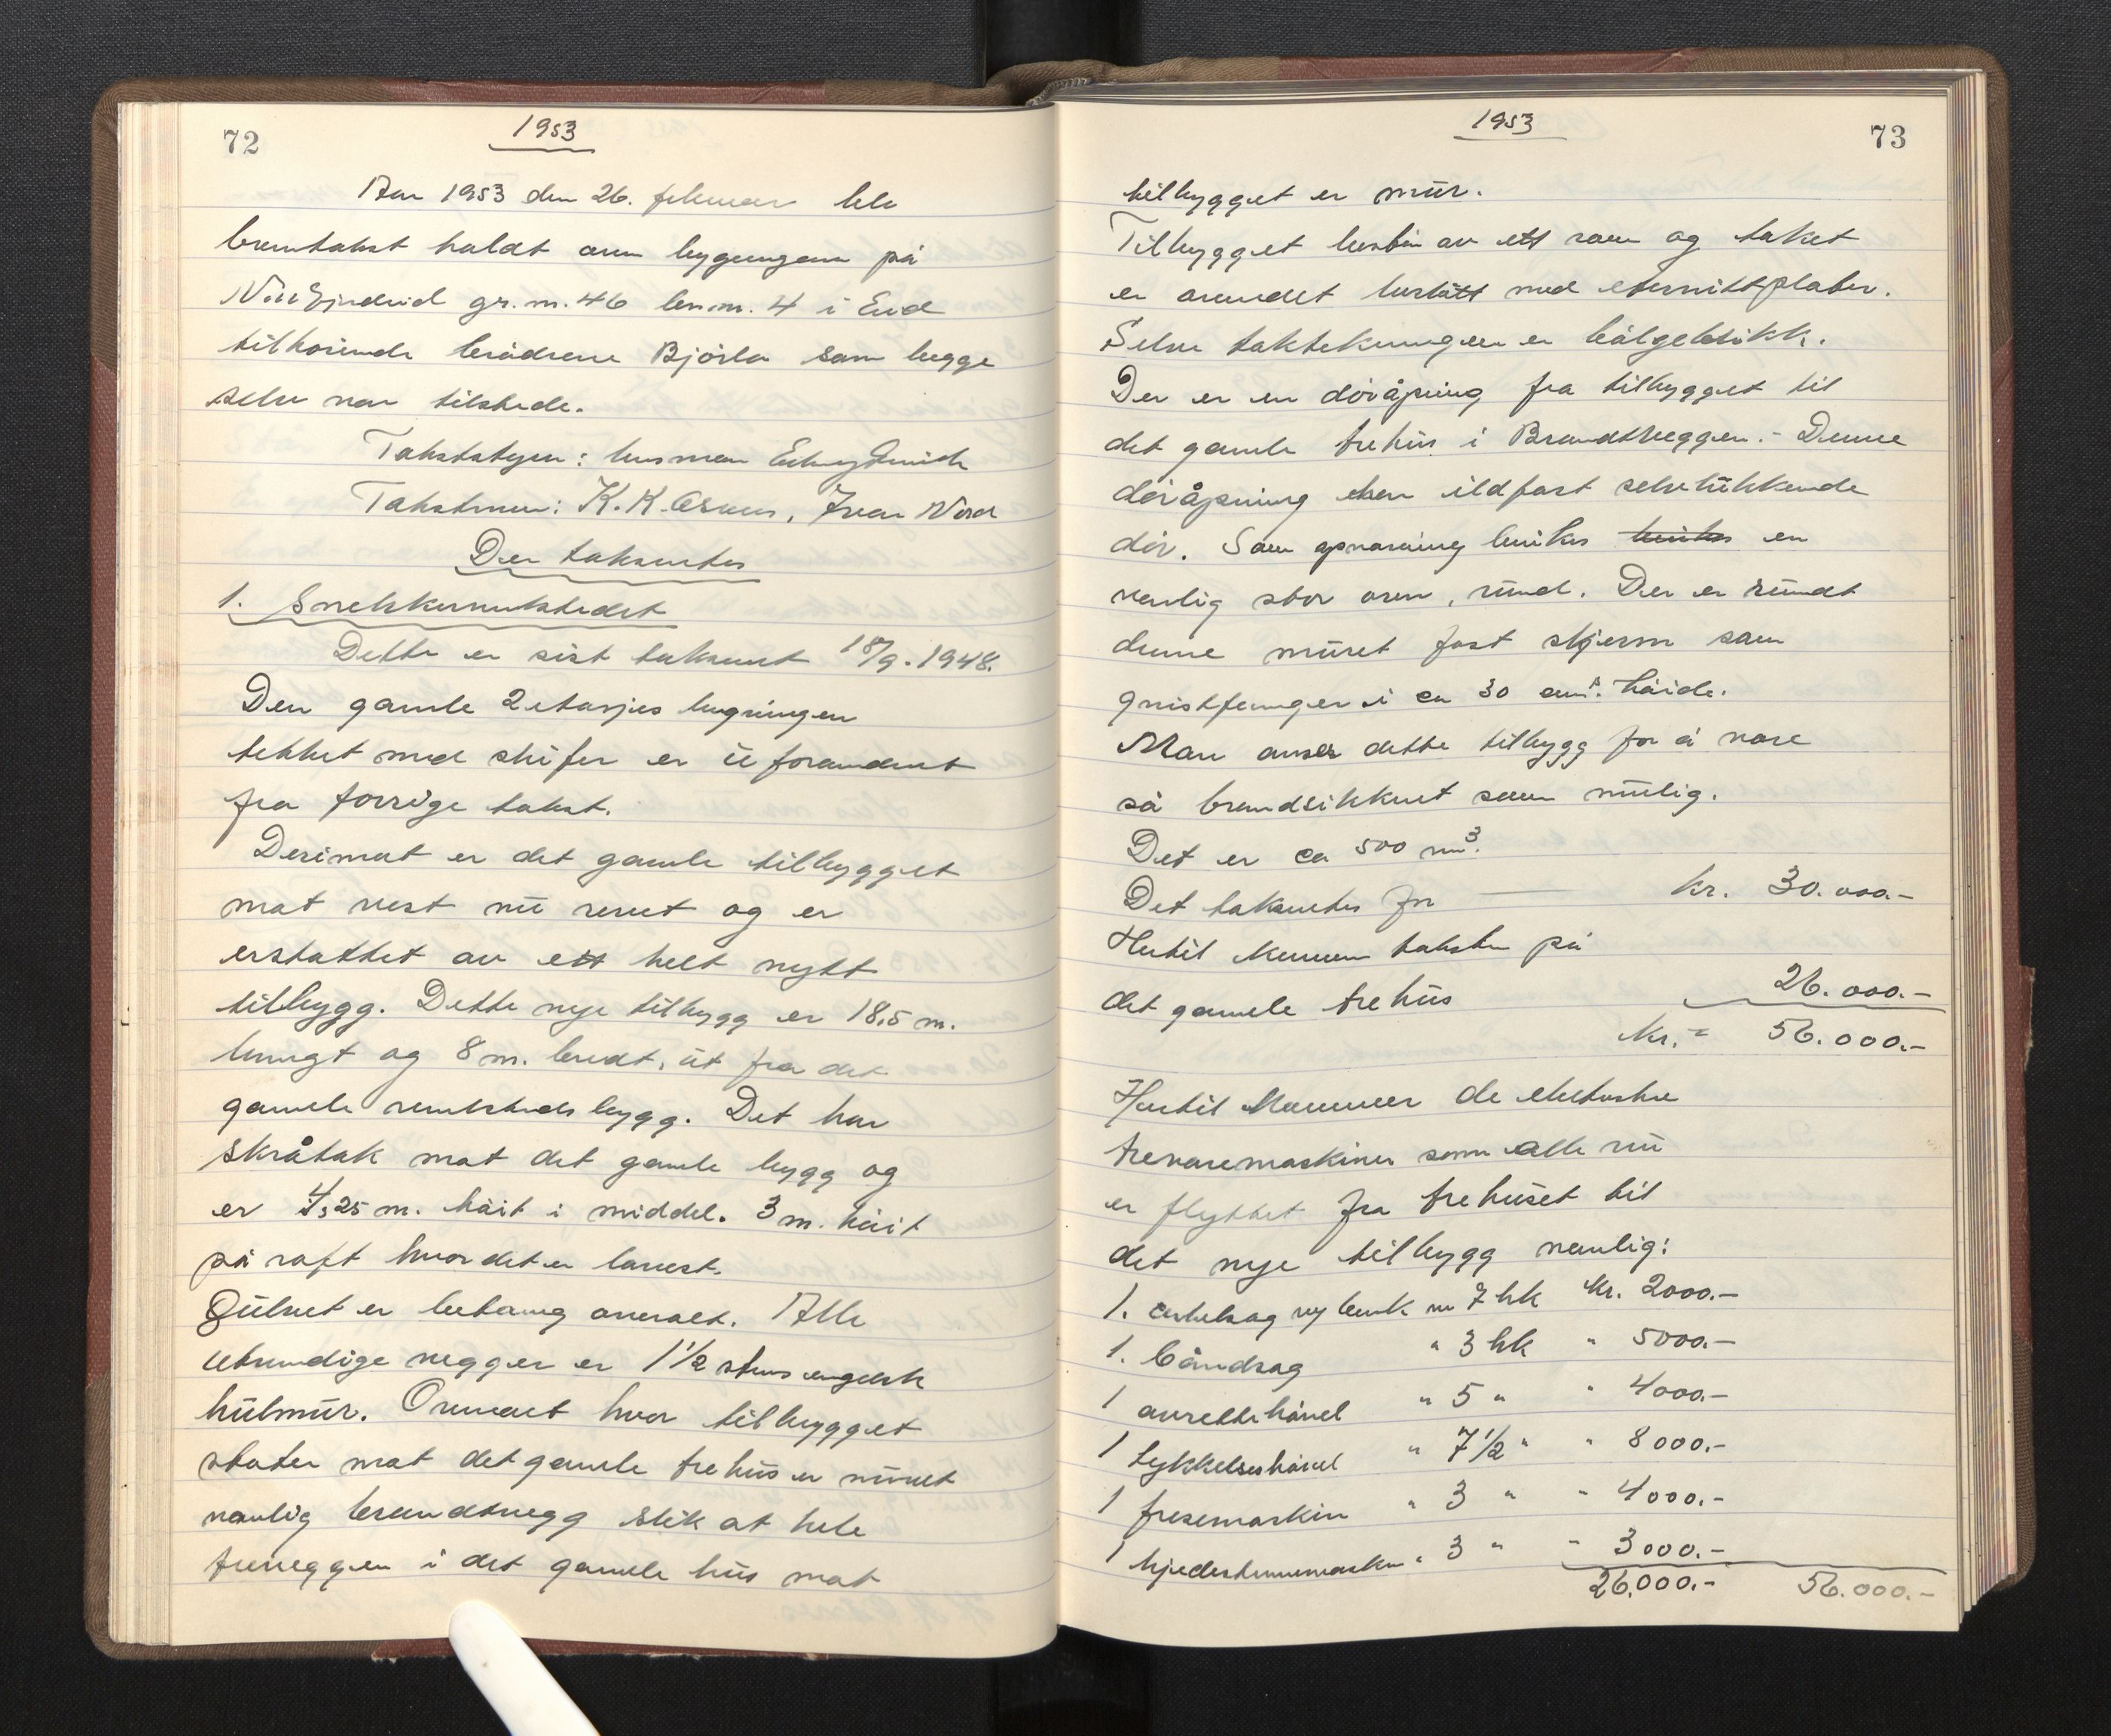 72
1953
Aar 1953 den 26. februar ble
branntakst haldt over bygningene på
gr.nr. 46 br.nr. 4 i Eid
tilhörende brödrene Björlo som begge
selv var tilstede.
Takststyrer: lensman
Takstmenn: K. K. Osnes, Ivar Nord
Der taksertes
1. Snekkerverkstedet
Dette er sist taksert 18/9. 1948.
Den gamle 2 etasjes bygningen
tekket med skifer er uforandret
fra forrige takst.
Derimot er det gamle tilbygget
mot vest nu revet og er
erstattet av ett helt nytt
tilbygg. Dette nye tilbygg er 18,5 m.
langt og 8 m. bredt, ut fra det
gamle verkstedsbygg. Det har
skråtak mot det gamle bygg og
er 4,25 m. höit i middel. 3 m. höit
på raft hvor det er lavest.
Gulvet er betong overalt. Alle
utvendige vegger er 1 1/2 stens engelsk
hulmur. Omveret hvor tilbygget
stöter mot det gamle trehus er muret
vanlig brandvegg slik at hele
treveggen i det gamle hus mot
1953
73
tilbygget er mur.
Tilbygget består av ett rom og taket
er avendet forsått med eternittplater.
Selve taktekningen er bölgeblikk.
Der er en döråpning fra tilbygget til
det gamle trehus i Brandveggen. - Denne
döråpning har ildfast selvlukkende
dör. Som opvarming brukes brukes en
vanlig stor ovn, rund. Der er rundt
denne muret fast skjerm som
gnistfanger i ca 30 cm's höide.
Man anser dette tilbygg for å være
så brandsikkert som mulig.
Det er ca 500 m³.
Det taksertes for kr. 30.000.-
Hertil kommer taksten på
det gamle trehus 26.000.-
kr. = 56.000.-
Hertil kommer de elektriske
trevaremaskiner som alle nu
er flyttet fra trehuset til
det nye tilbygg nemlig:
1. m 7 hk kr. 2000.-
1. Båndsag " 3 hk " 5000.-
1 avrettehövel " 5 " " 4000.-
1 tykkelseshövel " 7 1/2 " " 8000.-
1 fresemaskin " 3 " " 4000.-
1 kjedestemmemaskin " 3 " " 3000.-
26.000.- 56.000.-